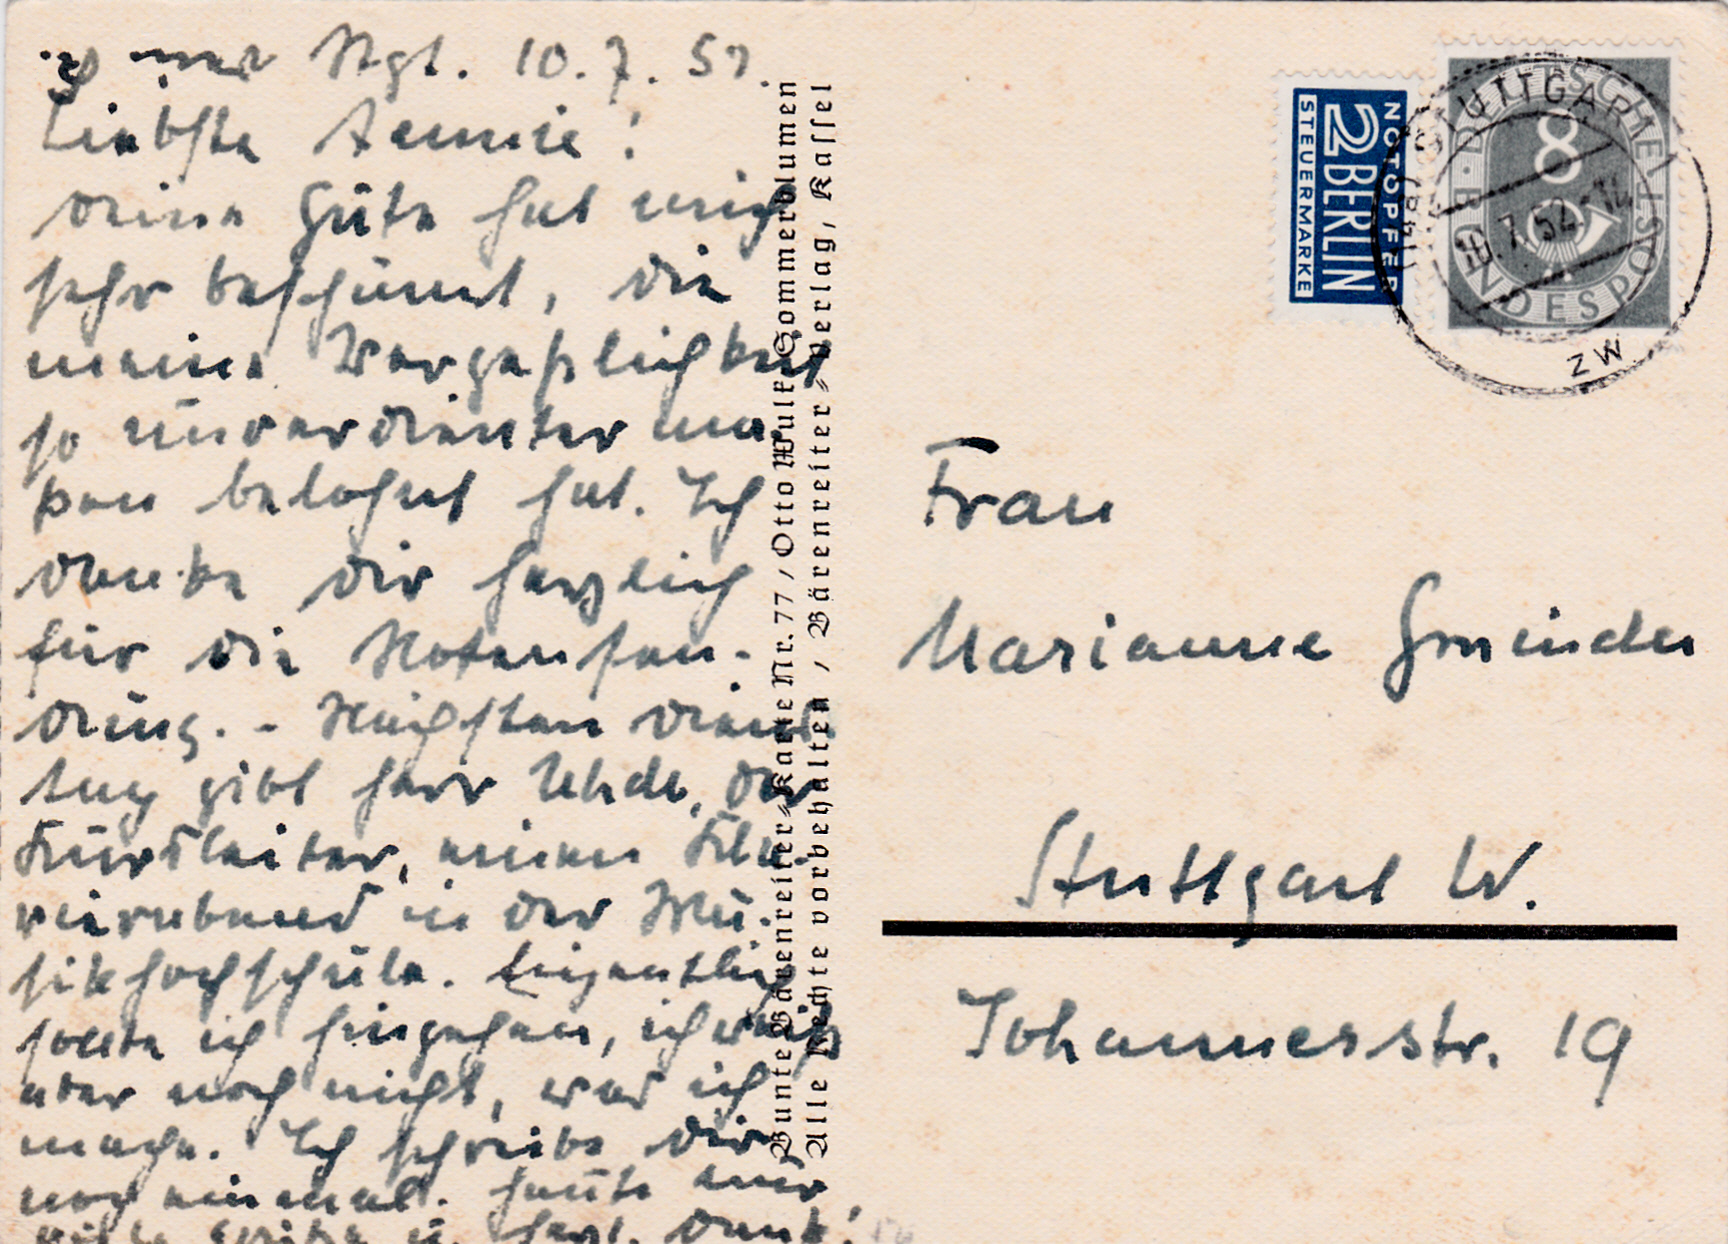 Stgt. 10.7.52.
Liebste Annnie!
Deine Güte hat mich
sehr beschämt, die
meine Vergeßlichkeit
so unverdienter ma-
ßen belohnt hat. Ich
danke Dir herzlich
für die Notensen-
dung. - Nächsten Diens-
tag gibt Herr Uhde, der
Kursleiter, einen Kla-
vierabend in der Mu-
sikhochschule. Eigentlich
sollte ich hingehen, ich weiß
aber noch nicht, was ich
mache. Ich schreibe Dir
noch einmal. Heute nur
viele Grüße u. herzl. Dank!
Bunte Bärenreiter-Karte Nr. 77 / Otto Wulk: Sommerblumen
Alle Rechte vorbehalten / Bärenreiter-Verlag, Kassel
NOTOPFER
2 BERLIN
STEUERMARKE
DEUTSCHE BUNDESPOST
8
STUTTGART
10.7.52.-14
ZW
Frau
Marianne Gmeinder
Stuttgart W.
Johannesstr. 19